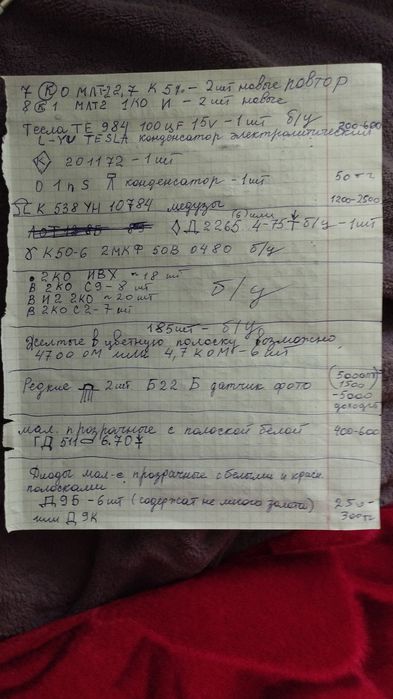 7 К 0 МЛТ-2 2,7 К 5% - 2 шт новые повтор
8 К 1 МЛТ2 1КО И - 2 шт новые
Тесла TE 984 100 µF 15V - 1 шт б/у
L-YU TESLA конденсатор электролитический 200-600
К 201172 - 1 шт
0 1 n S конденсатор - 1 шт 50 тг
К 538 УН 10784 медузы 1200-2500
Д 2265 (6) или 4-75 б/у - 1 шт
К50-6 2МКФ 50В 0480 б/у
2КО ИВХ ~ 18 шт
В 2КО С9 - 8 шт б/у
В И2 2КО ~ 20 шт
В 2КО С2 - 7 шт
185 шт - б/у
Желтые в цветную полоску возможно
4700 ОМ или 4,7 КОМ - 6 шт
Редкие 2 шт Б22 Б датчик фото (5000тг) 1500 -5000
мал. прозрачные с полоской белой 400-600
ГД 511 - 6.70
Диоды мал-е прозрачные с белыми и красн
полосками
Д 9Б - 6 шт (содержат не много золота) 250-
или Д 9К 300тг